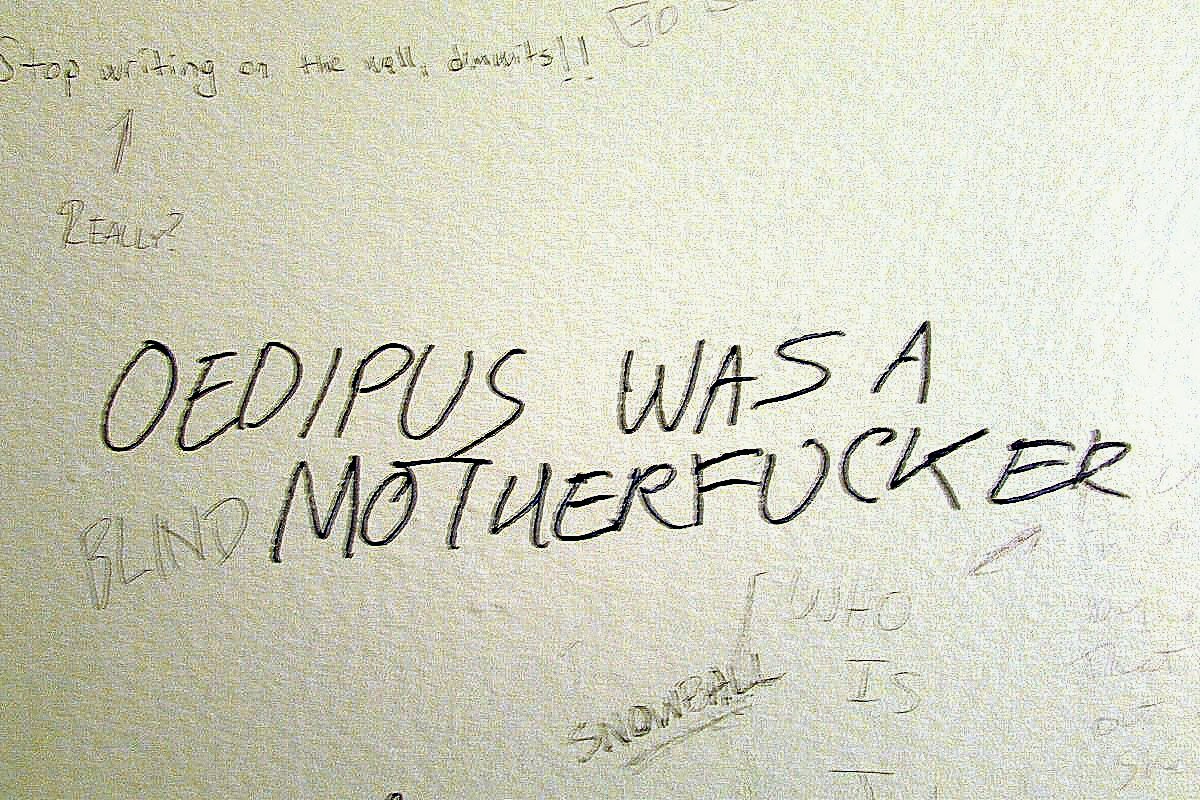 Stop writing on the wall, dimwits!!
REALLY?
OEDIPUS WAS A
BLIND MOTHERFUCKER
WHO
IS
SNOWBALL